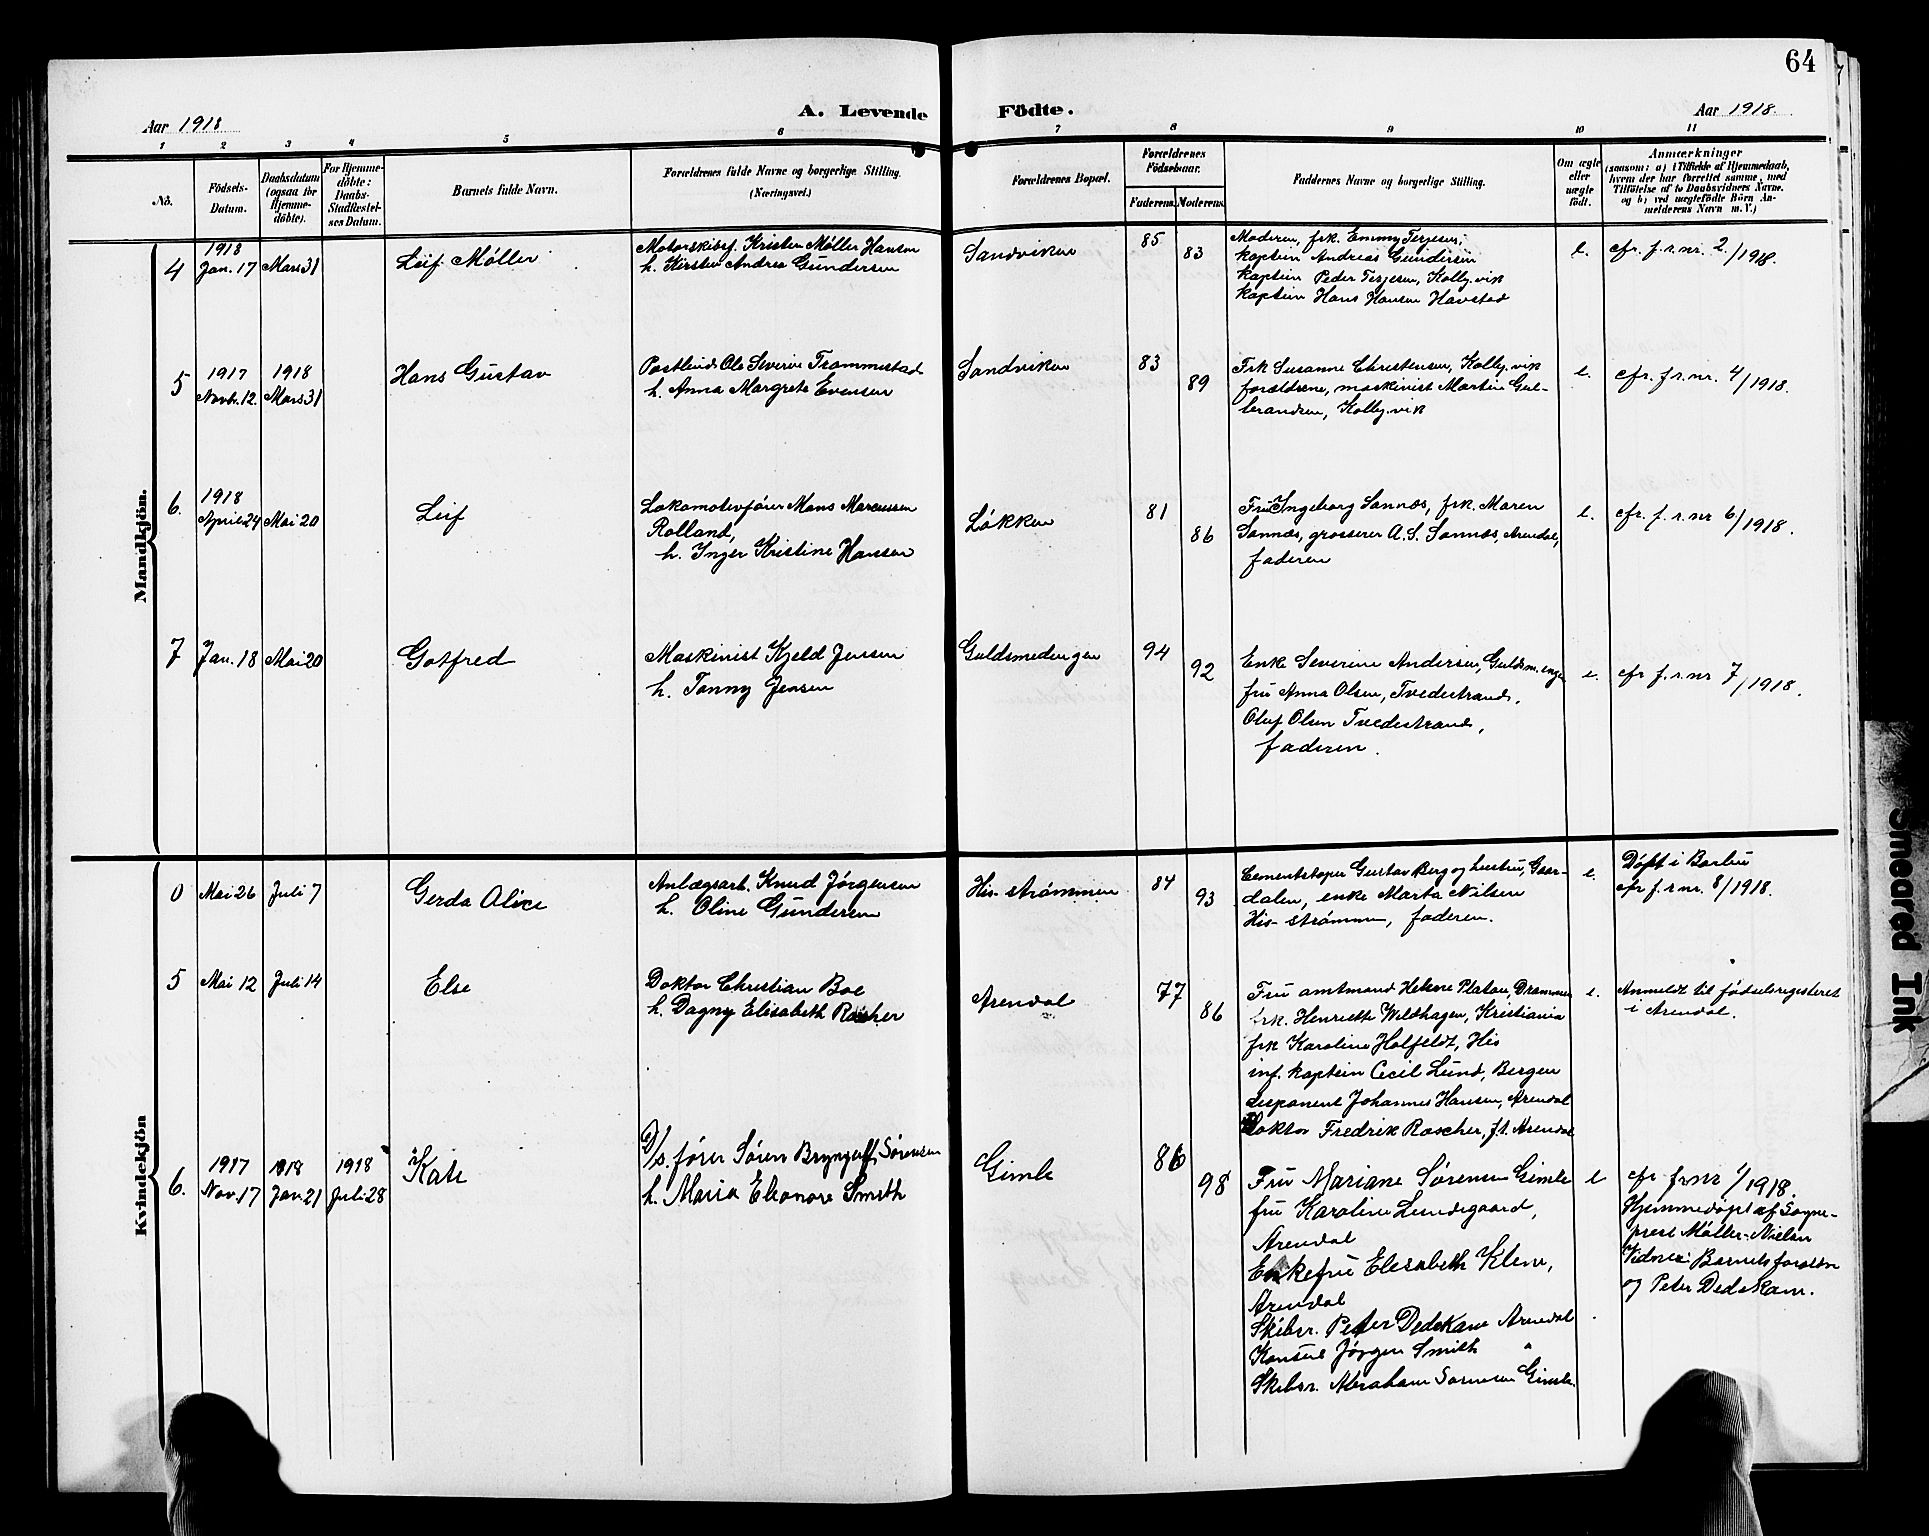 64
Aar 1918
A. Levende Födte.
Aar 1918.
1 2 3 4 5 6 7 8 9 10 11
No.
Födsels-
Datum.
Daabsdatum
(ogsaa for
Hjemme-
döbte).
For Hjemme-
döbte:
Daabs-
Stadfestel-
ses Datum.
Barnets fulde Navn.
Forældrenes fulde Navne og borgerlige Stilling.
(Næringsvei.)
Forældrenes Bopæl.
Forældrenes
Födselsaar.
Faderens.
Moderens.
Faddernes Navne og borgerlige Stilling.
Om ægte
eller
uægte
født.
Anmærkninger
(saasom: a) i Tilfælde af Hjemmedaab,
hvem der har forrettet samme, med
Tilföielse af to Daabsvidners Navne.
og b) ved uægtefödte Börn An-
melderens Navn m. V.)
Mandkjön.
4
1918
Jan. 17
Mars 31
Leif Møller
Motorskibsf. Kristen Møller Hansen
h. Kirsten Andrea Gundersen
Sandviken
85
83
Moderen, frk. Emmy Terjesen,
kaptein Andreas Gundersen
kaptein Peder Terjesen, Kolbj.vik
kaptein Hans Hansen Havstad
e.
cfr. f.r.nr. 2/1918.
5
1917
Novb. 12.
1918
Mars 31
Hans Gustav
Postbud Ole Severin Trommestad
h. Anna Margrete Evensen
Sandviken
83
89
Frk Susanne Christensen, Kolbj.vik
forældrene, maskinist Martin Gul-
brandsen, Kolbj.vik
e.
cfr. f.r.nr. 4/1918.
6.
1918
April 24
Mai 20
Leif
Lokomotivfører Mons Marcussen
Rolland,
h. Inger Kristine Hansen
Løkken
81
86
Fru Ingeborg Sannæs, frk. Maren
Sannæs, grosserer A. S. Sannæs, Arendal,
faderen
e.
cfr. f.r.nr 6/1918.
7
Jan. 18
Mai 20
Gotfred
Maskinist Kjeld Jensen
h. Tonny Jensen
Guldsmedengen
94
92
Enke Severine Andersen, Guldsm.engen
fru Anna Olsen, Tvedestrand,
Oluf Olsen Tvedestrand,
faderen.
e.
cfr f.r.nr 7/1918.
Kvindekjön
0
Mai 26
Juli 7
Gerda Alice
Anlægsarb. Knud Jørgensen
h. Oline Gundersen
His-strømmen
84
93
Cementstøper Gustav Berg og hustru, Gaar-
dalen, enke Marta Nilsen
His-strømmen, faderen.
e.
Døpt i Barbu
cfr f.r.nr. 8/1918.
5
Mai 12
Juli 14
Else
Doktor Christian Boe
h. Dagny Elisabeth Roscher
Arendal
77
86
Fru amtmand Helene Platou, Drammen
frk. Henriette Wildhagen, Kristiania
frk Karoline Holfeldt, His
inf. kaptein Cecil Lund, Bergen
disponent Johannes Hansen, Arendal
Doktor Fredrik Roscher, f.t. Arendal
e.
Anmeldt til fødselsregisteret
i Arendal.
6.
1917
Nov. 17
1918
Jan. 21
1918
Juli 28
Kate
D/s. fører Søren Bryngulf Sørensen
h. Maria Eleonore Smith
Gimle
86
98
Fru Mariane Sørensen Gimle
fru Karoline Lundegaard,
Arendal
Enkefru Elisabeth Klem,
Arendal
Skibsr. Peter Dedekam Arendal
Konsul Jørgen Smith "
Skibsr. Abraham Sørensen Gimle.
e
cfr. f.r.nr 1/1918.
Hjemmedøpt af Sogne-
prest Møller-Nielsen
Vidner: Barnets forældre
og Peter Dedekam.
Smeared Ink